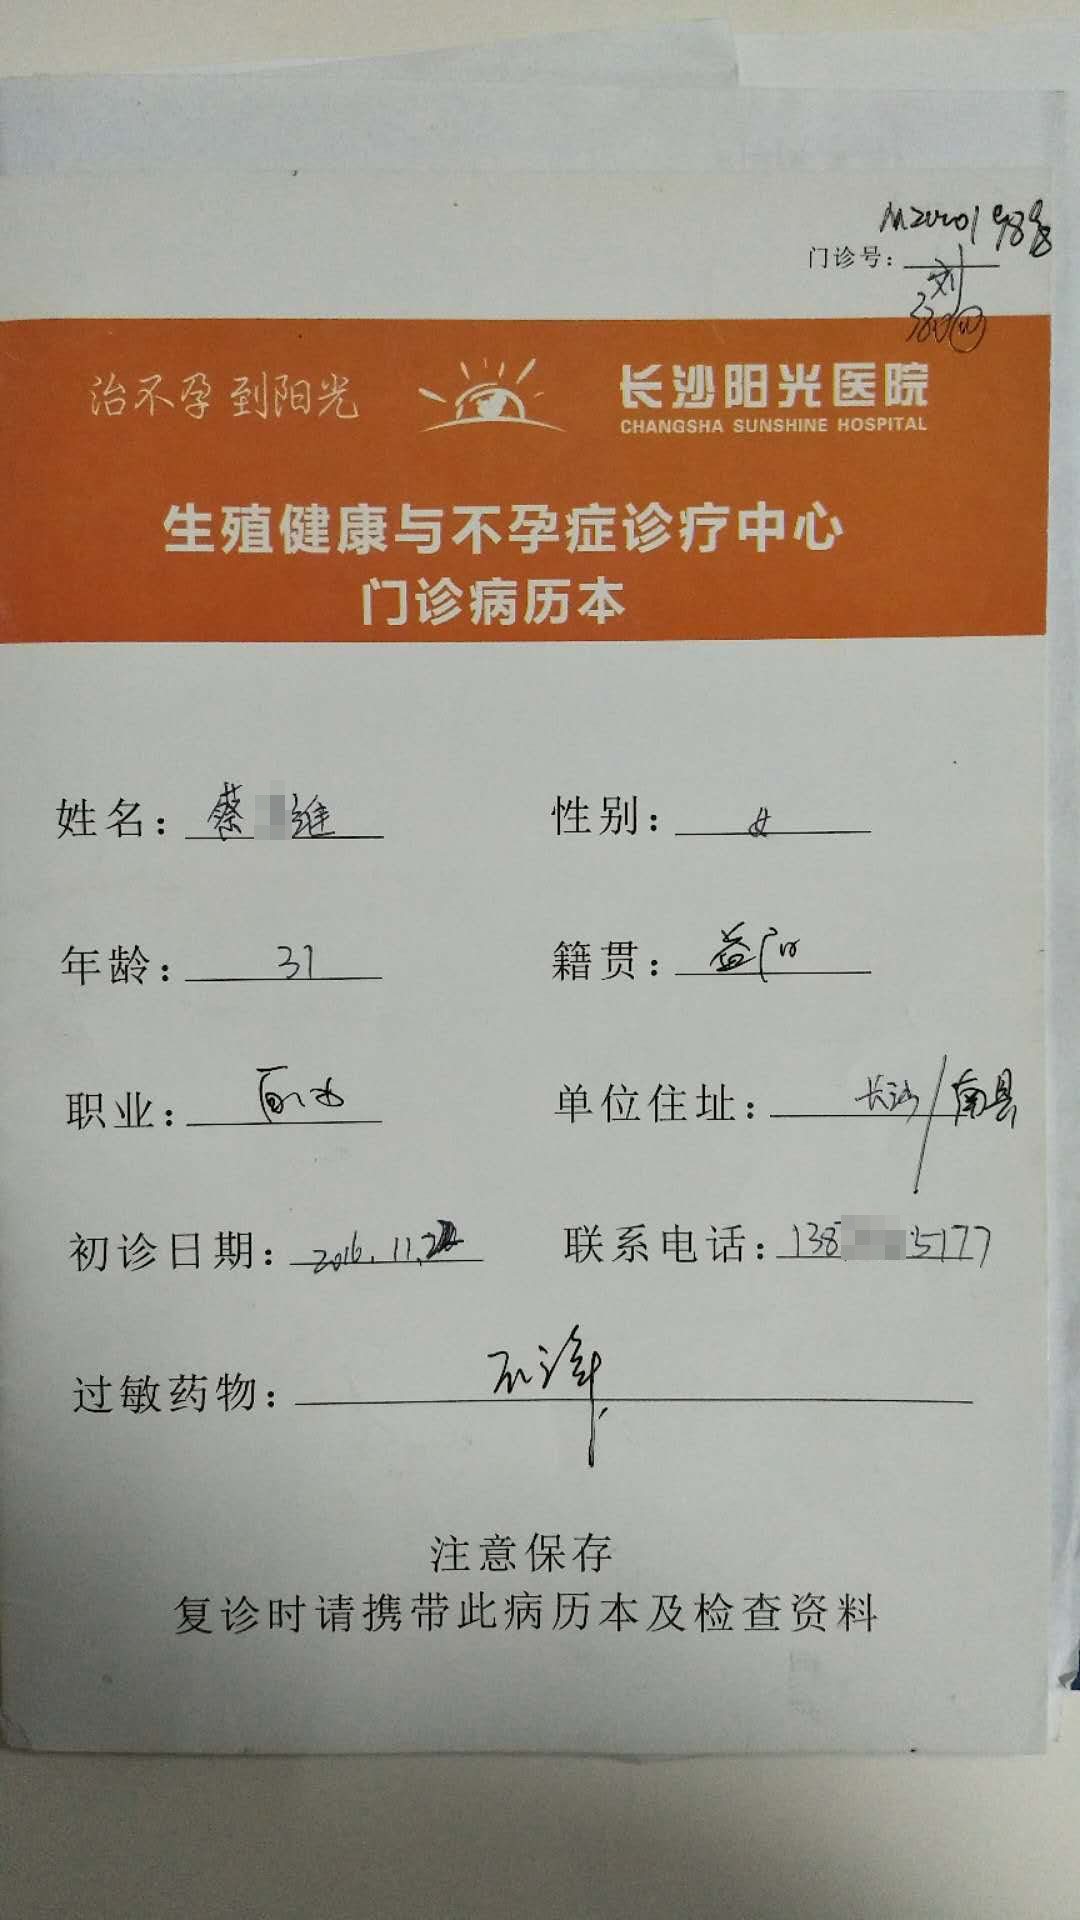 门诊号：
治不孕 到阳光
长沙阳光医院
CHANGSHA SUNSHINE HOSPITAL
生殖健康与不孕症诊疗中心
门诊病历本
姓名：蔡 维 性别：女
年龄：31 籍贯：益阳
职业： 单位住址：长沙/南县
初诊日期：2016.11.22 联系电话：138 5177
过敏药物：不详
注意保存
复诊时请携带此病历本及检查资料